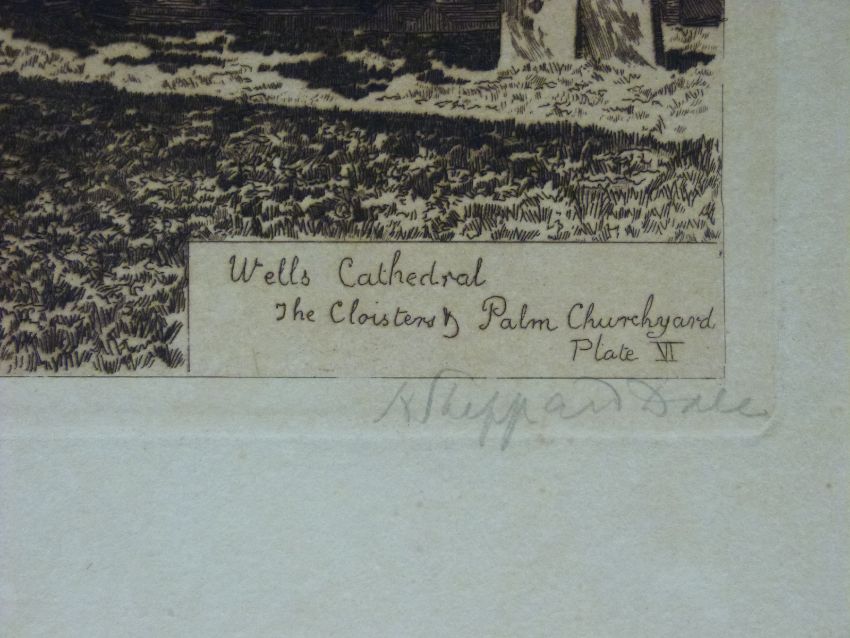 Wells Cathedral
The Cloisters & Palm Churchyard
Plate VI
H Sheppard Dale